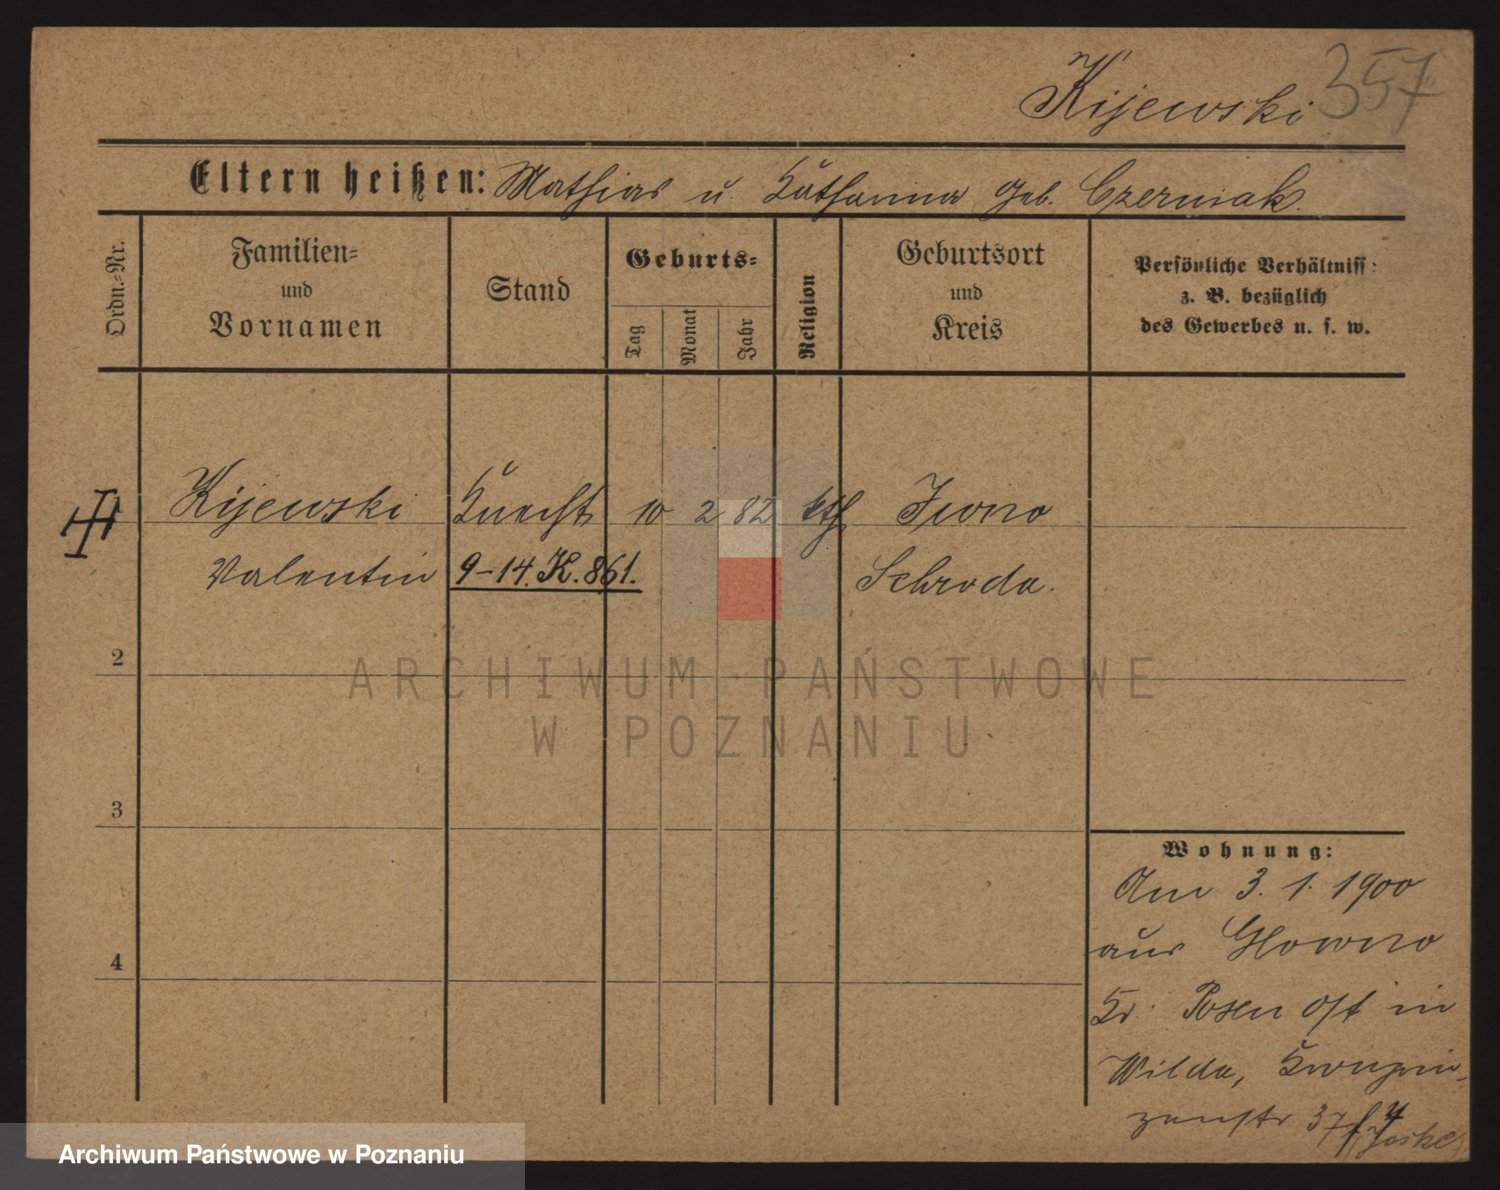 Kijewski 357
Eltern heißen: Mathias u. Katharina geb. Czerniak.
Ordn.-Nr.
Familien-
und
Vornamen
Stand
Geburts-
Tag
Monat
Jahr
Religion
Geburtsort
und
Kreis
Persönliche Verhältniss:
z. B. bezüglich
des Gewerbes u. s. w.
Kijewski Knecht 10 2 82 kth Iwno
Valentin 9-14. K. 861. Schroda.
2
3
4
Wohnung:
Am 3. 1. 1900
aus Glowno
Kr. Posen Ost in
Wilda, Kronprin-
zenstr 37
ARCHIWUM PAŃSTWOWE
W POZNANIU
Archiwum Państwowe w Poznaniu